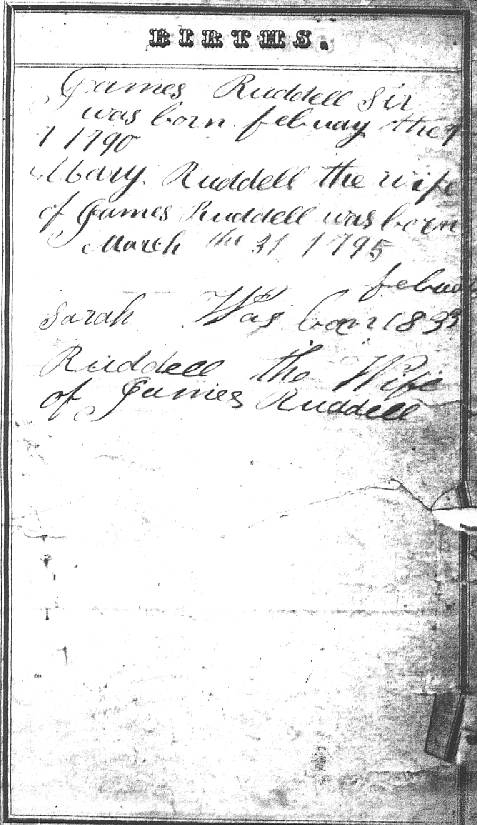 BIRTHS.
James Ruddell Sir
was born febuay the 9
1790
Mary Ruddell the wife
of James Ruddell was born
March the 31 1795
febuay
Sarah Was born 1833
Ruddell the Wife
of James Ruddell